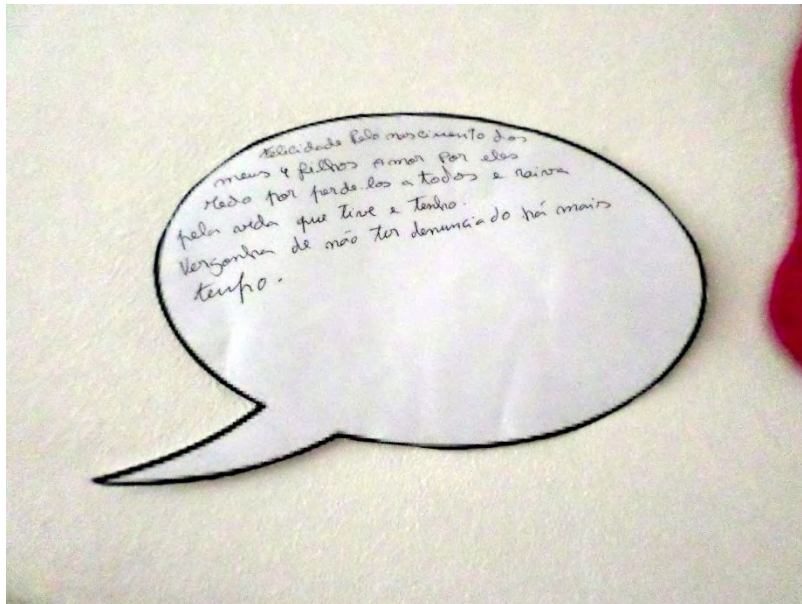 Felicidade Pelo nascimento dos
meus 4 filhos Amor Por eles
Medo por perde-los a todos e raiva
pela vida que tive e tenho.
Vergonha de não ter denunciado há mais
tempo.